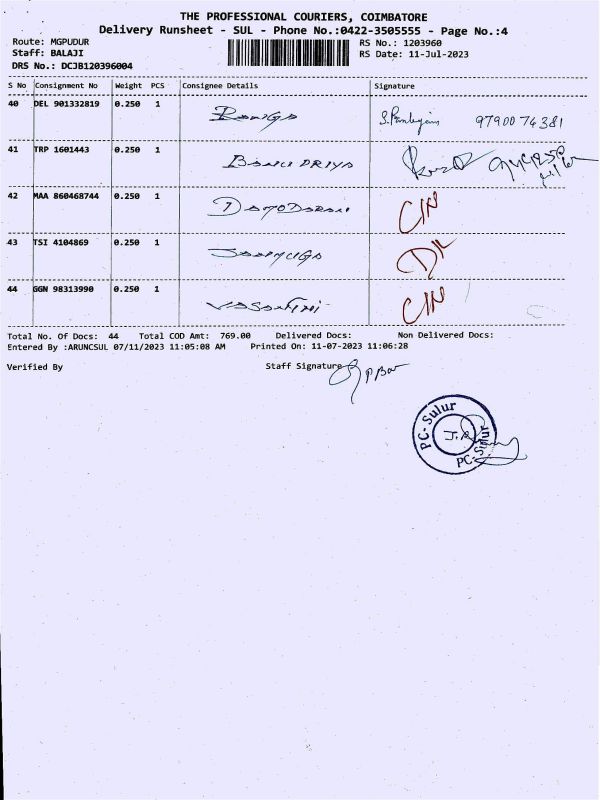 THE PROFESSIONAL COURIERS, COIMBATORE
Delivery Runsheet - SUL - Phone No.:0422-3505555 - Page No.:4
Route: MGPUDUR RS No.: 1203960
Staff: BALAJI RS Date: 11-Jul-2023
DRS No.: DCJB120396004
S No Consignment No Weight PCS Consignee Details Signature
40 DEL 901332819 0.250 1 9790074381
41 TRP 1601443 0.250 1 BANU PRIYA
42 MAA 860468744 0.250 1 DAMODARAN C/N
43 TSI 4104869 0.250 1 D/L
44 GGN 98313990 0.250 1 C/N
Total No. Of Docs: 44 Total COD Amt: 769.00 Delivered Docs: Non Delivered Docs:
Entered By :ARUNCSUL 07/11/2023 11:05:08 AM Printed On: 11-07-2023 11:06:28
Verified By Staff Signature
PC-Sulur
PC-Sulur